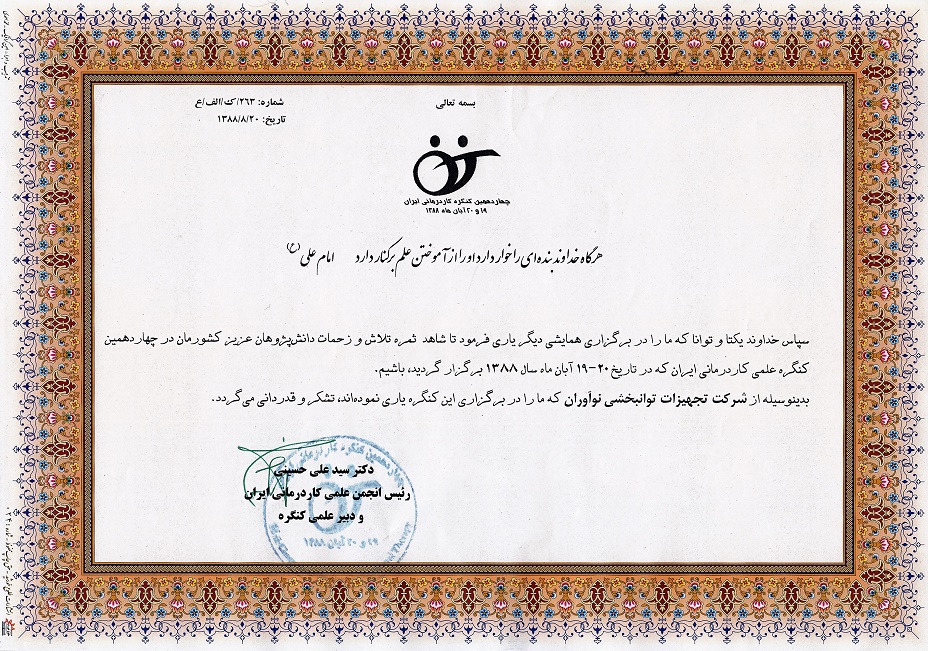 بسمه تعالی
شماره: ۲۶۳/ک/الف/ع
تاریخ: ۱۳۸۸/۸/۲۰
چهاردهمین کنگره کاردرمانی ایران
۱۹ و ۲۰ آبان ماه ۱۳۸۸
هرگاه خداوند بنده‌ای را خوار دارد او را از آموختن علم برکنار دارد امام علی (ع)
سپاس خداوند یکتا و توانا که ما را در برگزاری همایشی دیگر یاری فرمود تا شاهد ثمره تلاش و زحمات دانش‌پژوهان عزیز کشورمان در چهاردهمین
کنگره علمی کاردرمانی ایران که در تاریخ ۲۰-۱۹ آبان ماه سال ۱۳۸۸ برگزار گردید، باشیم.
بدینوسیله از شرکت تجهیزات توانبخشی نوآوران که ما را در برگزاری این کنگره یاری نموده‌اند، تشکر و قدردانی می‌گردد.
دکتر سید علی حسینی
رئیس انجمن علمی کاردرمانی ایران
و دبیر علمی کنگره
چهاردهمین کنگره کاردرمانی
۱۹ و ۲۰ آبان ۱۳۸۸